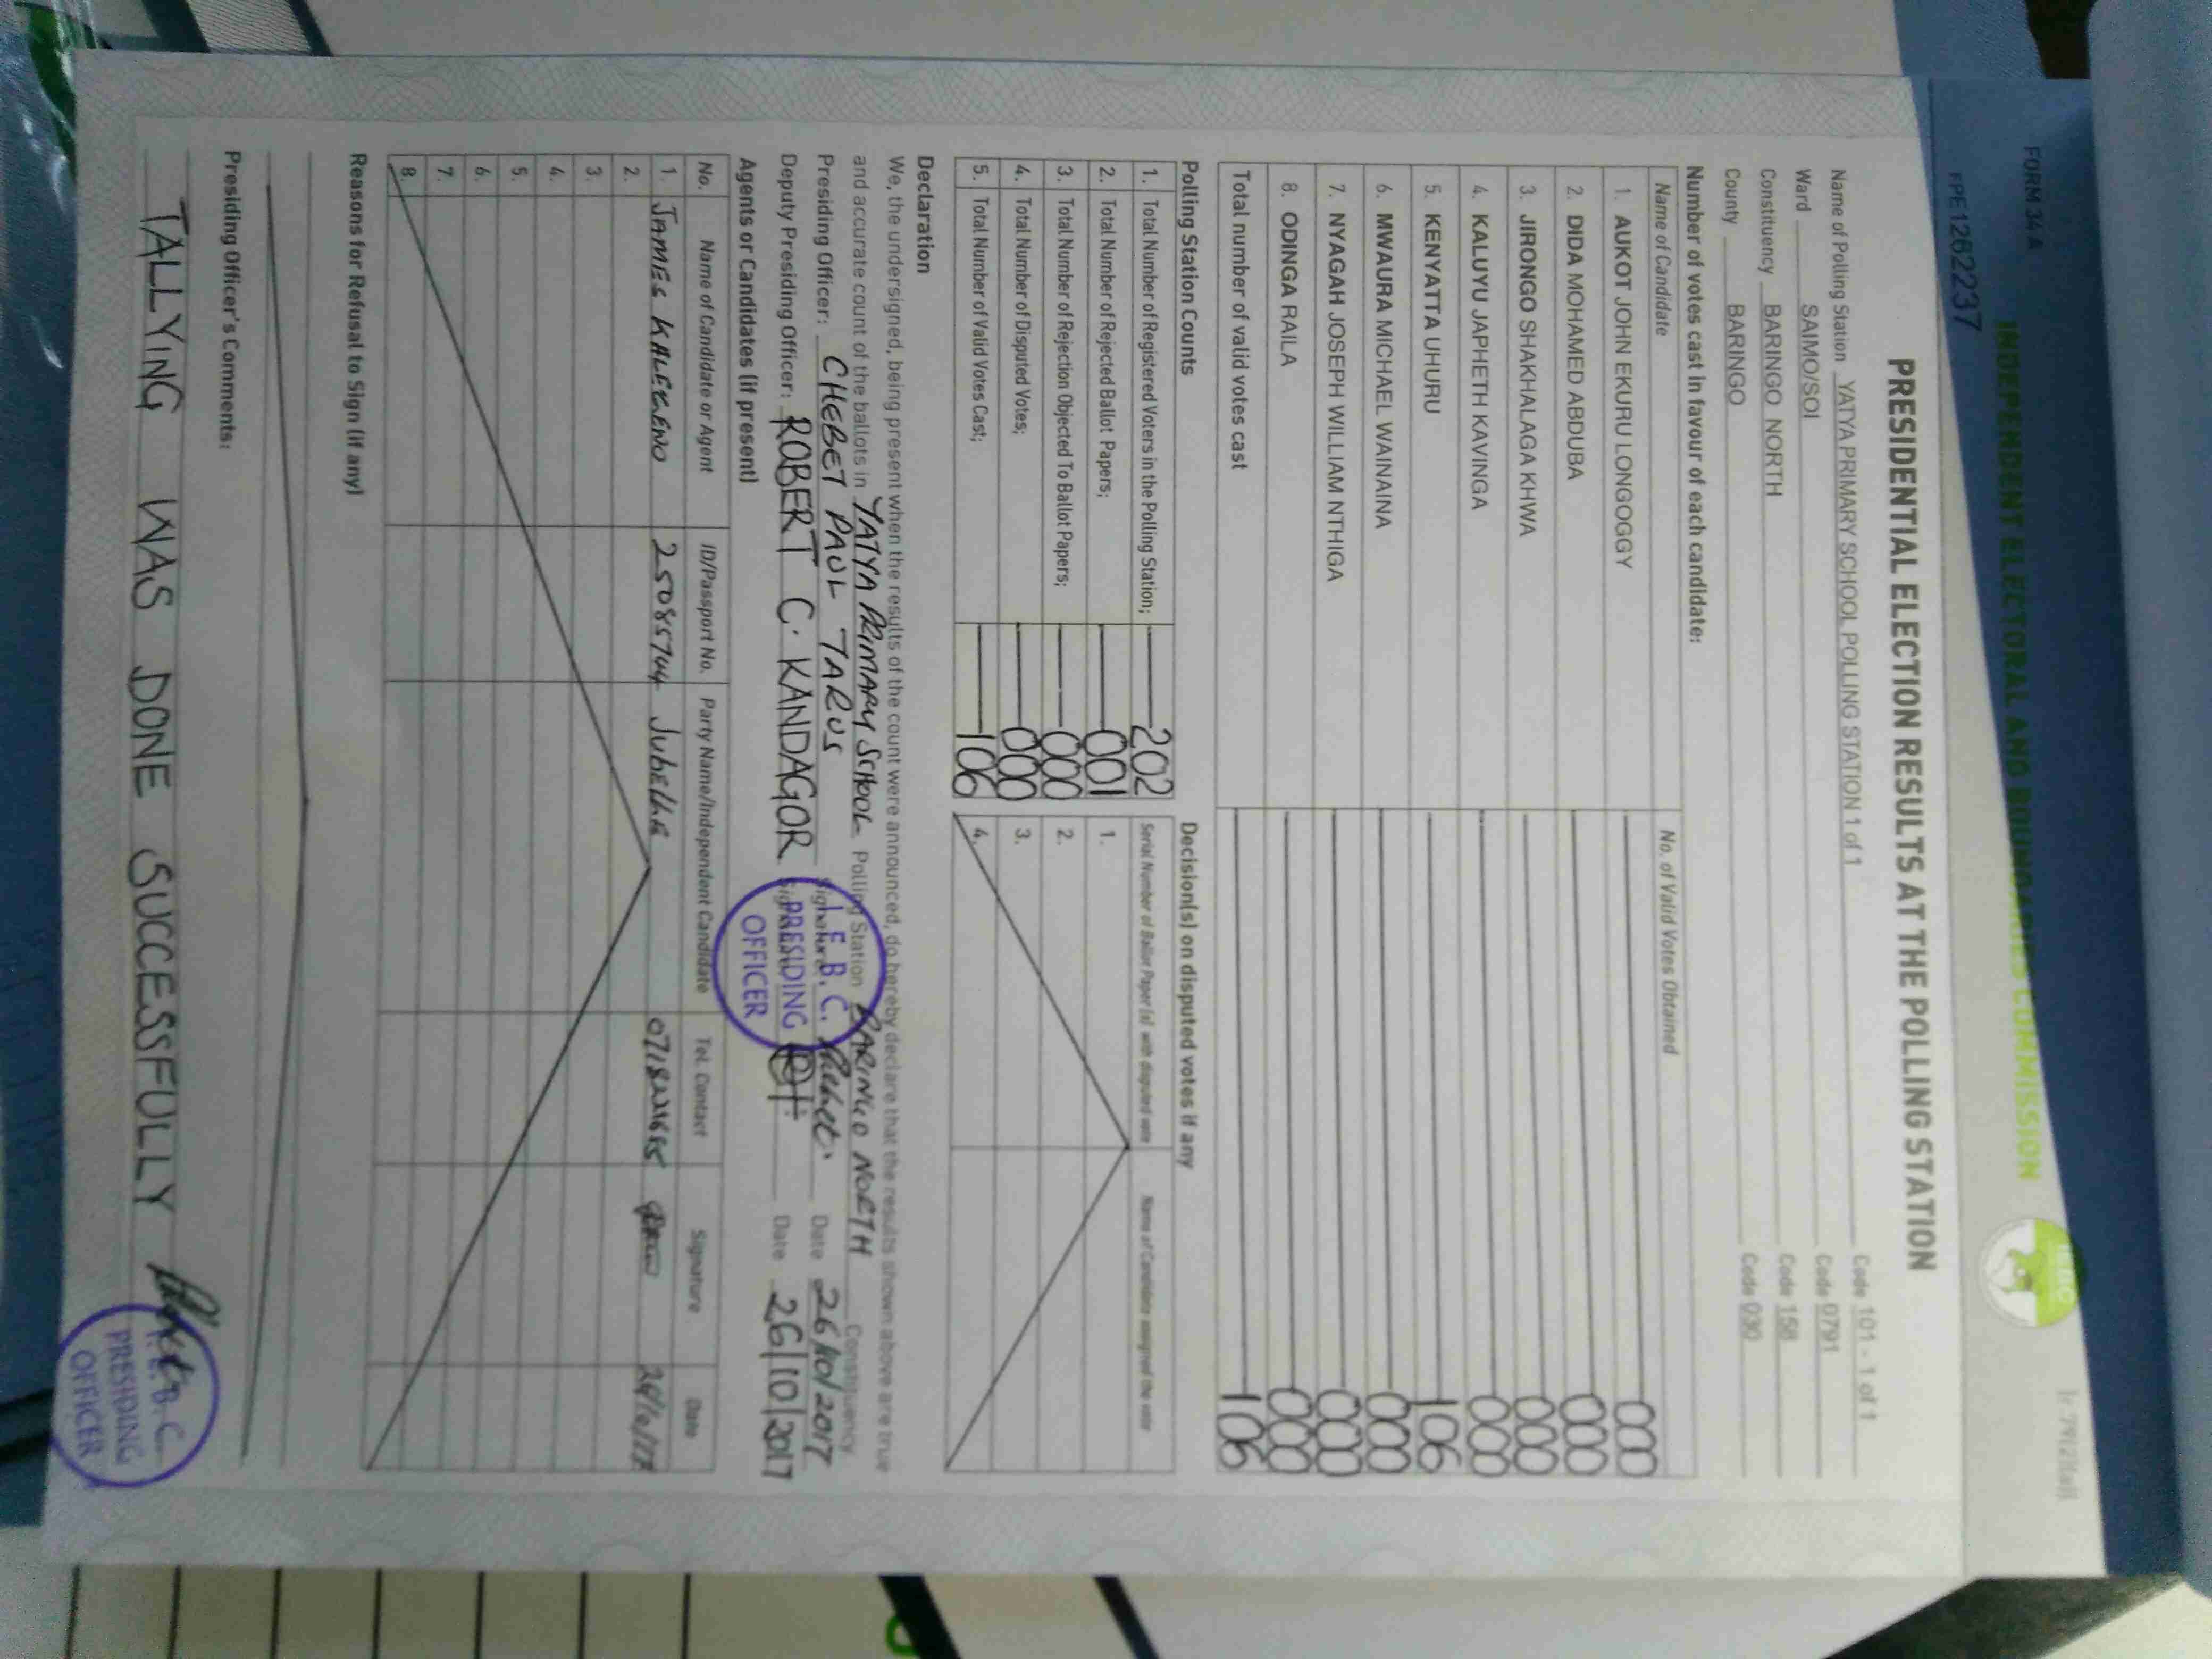 FORM 34 A
INDEPENDENT ELECTORAL AND BOUNDARIES COMMISSION
FPE1262237
PRESIDENTIAL ELECTION RESULTS AT THE POLLING STATION
Name of Polling Station YATYA PRIMARY SCHOOL POLLING STATION 1 of 1 Code 101 - 1 of 1
Ward SAIMO/SOI Code 0791
Constituency BARINGO NORTH Code 158
County BARINGO Code 030
Number of votes cast in favour of each candidate:
Name of Candidate No. of Valid Votes Obtained
1. AUKOT JOHN EKURU LONGOGGY 000
2. DIDA MOHAMED ABDUBA 000
3. JIRONGO SHAKHALAGA KHWA 000
4. KALUYU JAPHETH KAVINGA 000
5. KENYATTA UHURU 106
6. MWAURA MICHAEL WAINAINA 000
7. NYAGAH JOSEPH WILLIAM NTHIGA 000
8. ODINGA RAILA 000
Total number of valid votes cast 106
Polling Station Counts Decision(s) on disputed votes if any
1. Total Number of Registered Voters in the Polling Station; 202
2. Total Number of Rejected Ballot Papers; 001
3. Total Number of Rejection Objected To Ballot Papers; 000
4. Total Number of Disputed Votes; 000
5. Total Number of Valid Votes Cast; 106
Serial Number of Ballot Paper (s) with disputed vote Name of Candidate assigned the vote
1.
2.
3.
4.
Declaration
We, the undersigned, being present when the results of the count were announced, do hereby declare that the results shown above are true
and accurate count of the ballots in YATYA PRIMARY SCHOOL Polling Station BARINGO NORTH Constituency
Presiding Officer: CHEBET PAUL TARUS Signature Date 26/10/2017
Deputy Presiding Officer: ROBERT C. KANDAGOR Signature Date 26/10/2017
I.E.B.C.
PRESIDING
OFFICER
Agents or Candidates (if present)
No. Name of Candidate or Agent ID/Passport No. Party Name/Independent Candidate Tel. Contact Signature Date
1. JAMES 25085744 Jubelee 26/10/17
2.
3.
4.
5.
6.
7.
8.
Reasons for Refusal to Sign (if any)
Presiding Officer's Comments:
TALLYING WAS DONE SUCCESSFULLY
I.E.B.C.
PRESIDING
OFFICER